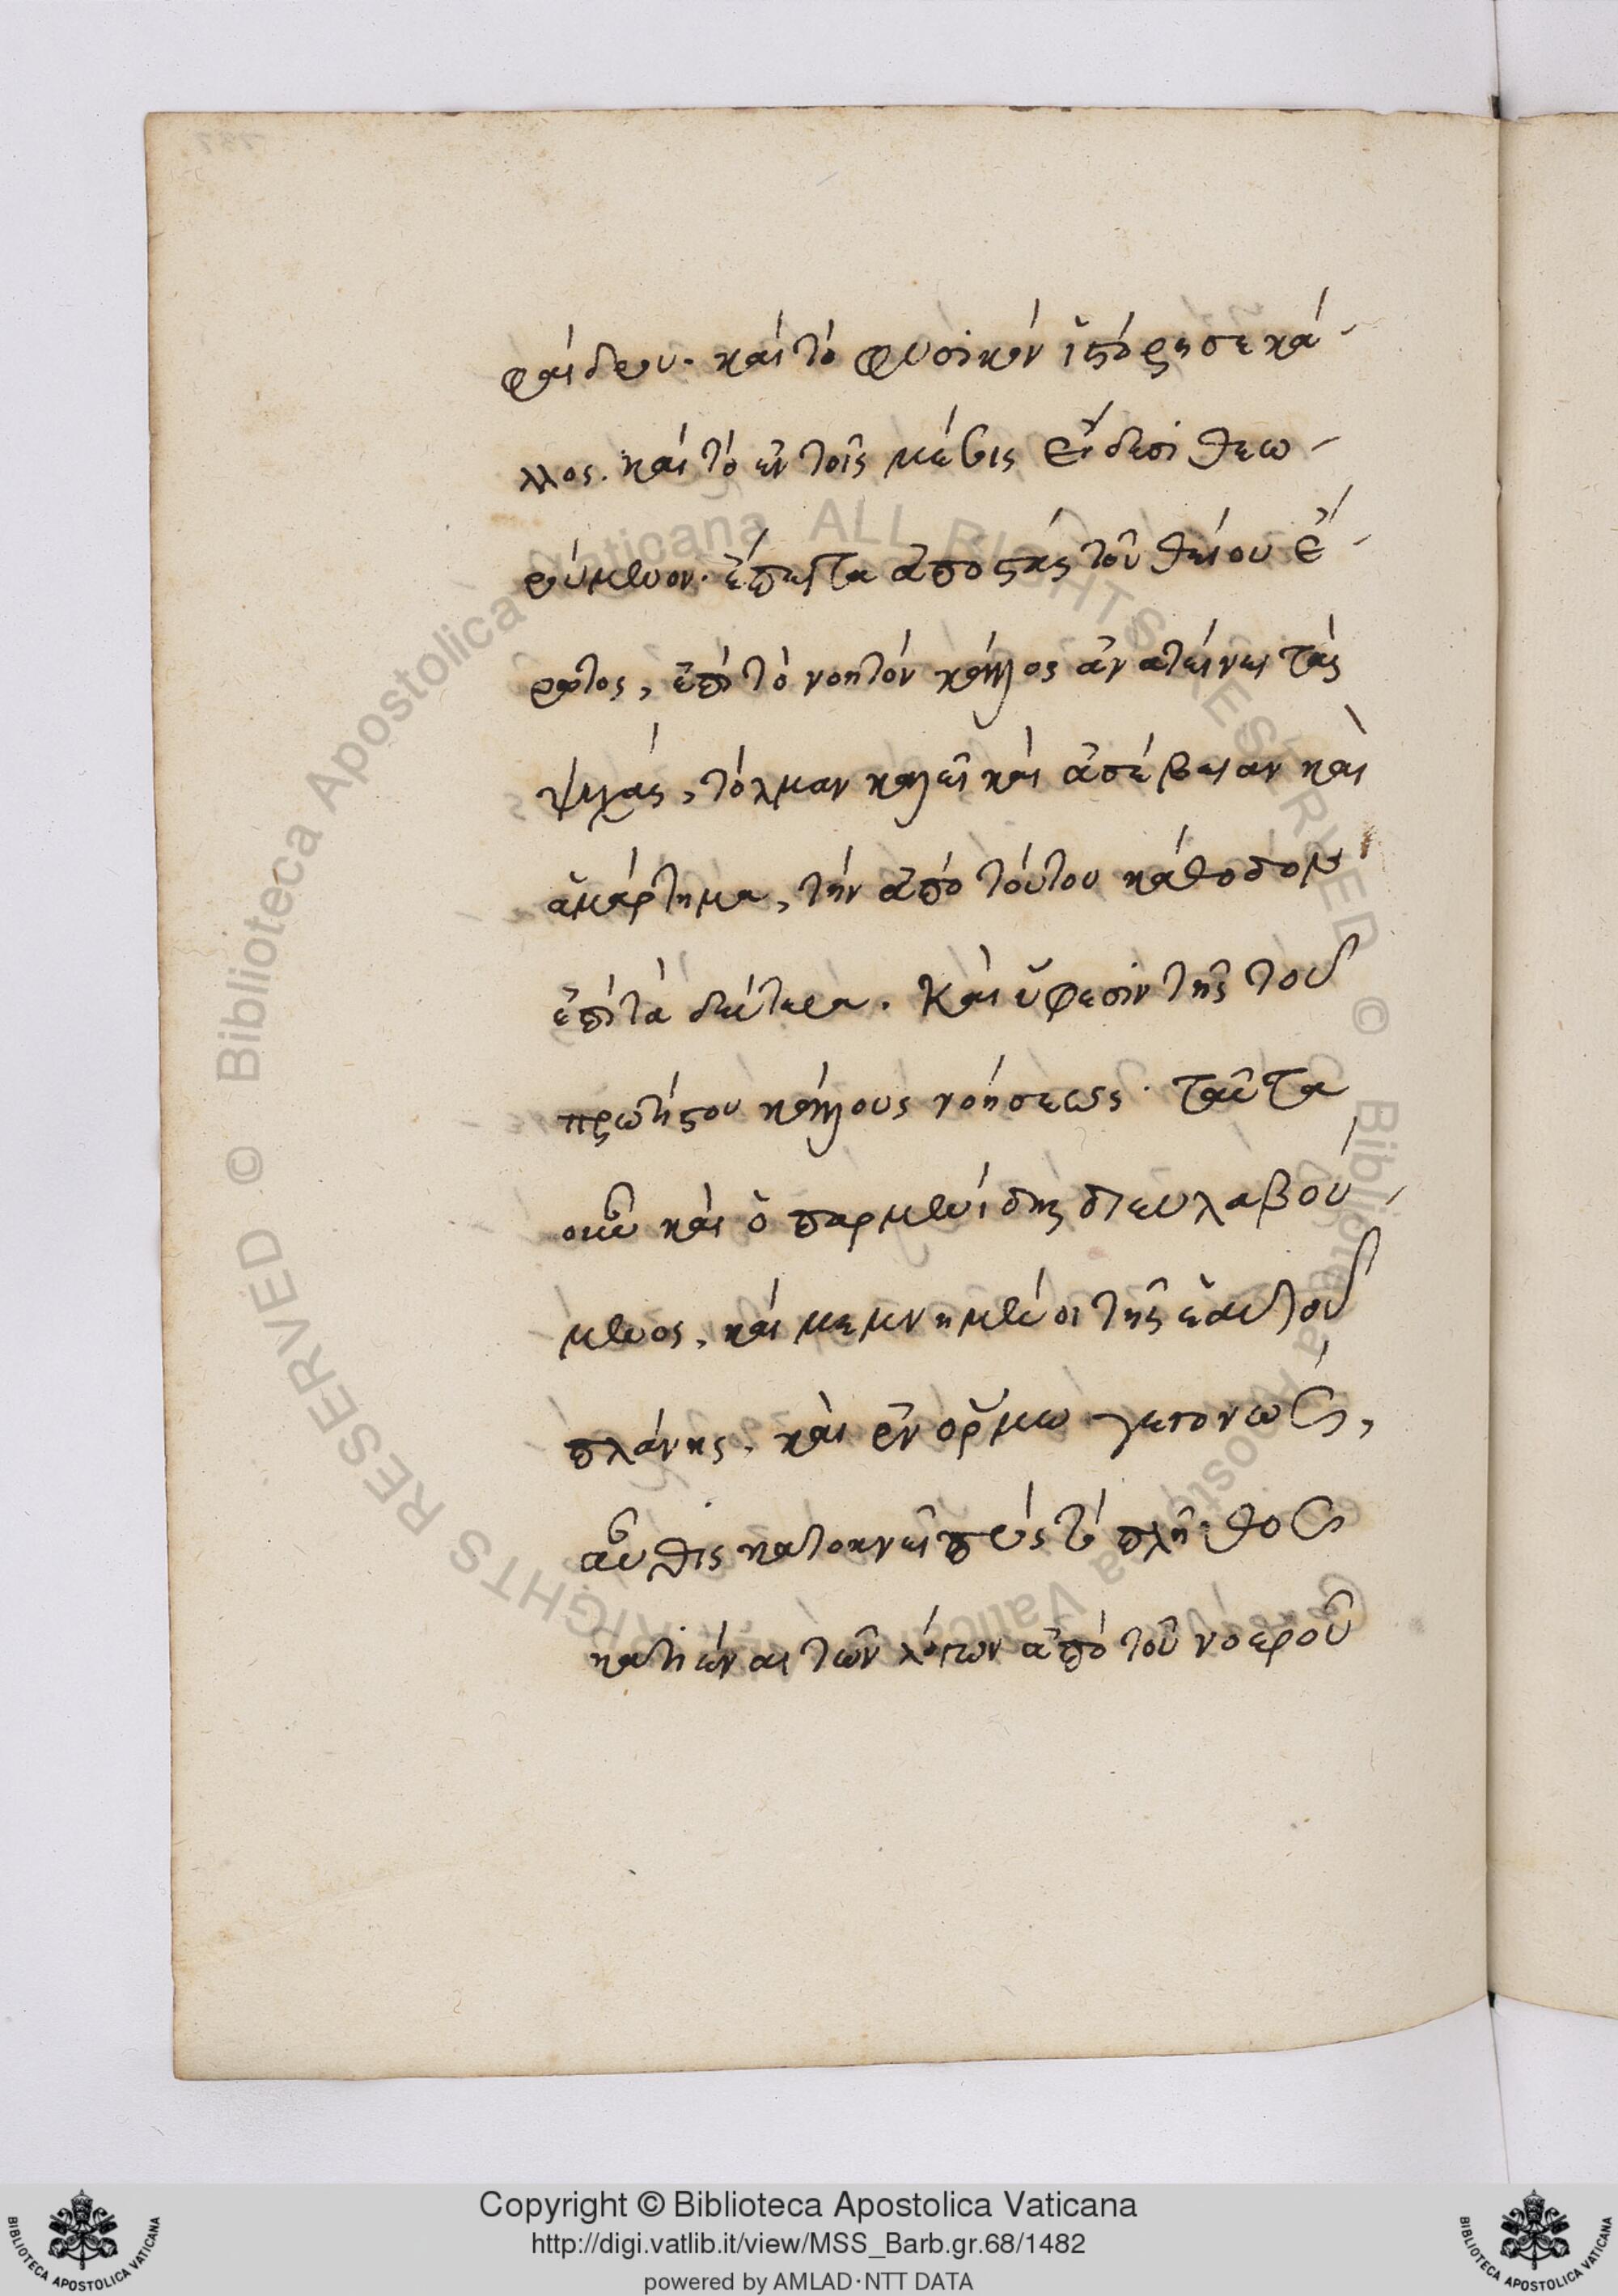 φαίδρου. καὶ τὸ φυσικὸν ἱστόρησε κά-
λλος. καὶ τὸ ἐν τοῖς μέσοις εἴδεσι θεω-
ρούμενον. ἔπειτα ἀποστὰς τοῦ θείου ἔ-
ρωτος, ἐπὶ τὸ νοητὸν κάλλος ἀνατείνει τὰς
ψυχάς, τόλμαν καλεῖ καὶ ἀσέβειαν καὶ
ἁμάρτημα, τὴν ἀπὸ τούτου κάθοδον
ἐπὶ τὰ δεύτερα. Καὶ ὕφεσιν τῆς τοῦ
πρωτίστου κάλλους νοήσεως. ταῦτα
οὖν καὶ ὁ παρμενίδης διευλαβού-
μενος, καὶ μεμνημένοι τῆς ἑαυτοῦ
πλάνης, καὶ ἐν ὅρμω γεγονώς,
αὖθις κατοκνεῖ πρὸς τὸ πλῆθος
κατιέναι τῶν λόγων ἀπὸ τοῦ νοεροῦ
Copyright © Biblioteca Apostolica Vaticana
http://digi.vatlib.it/view/MSS_Barb.gr.68/1482
powered by AMLAD·NTT DATA
© Biblioteca Apostolica Vaticana ALL RIGHTS RESERVED
© Biblioteca Apostolica Vaticana ALL RIGHTS RESERVED
BIBLIOTECA APOSTOLICA VATICANA
BIBLIOTECA APOSTOLICA VATICANA